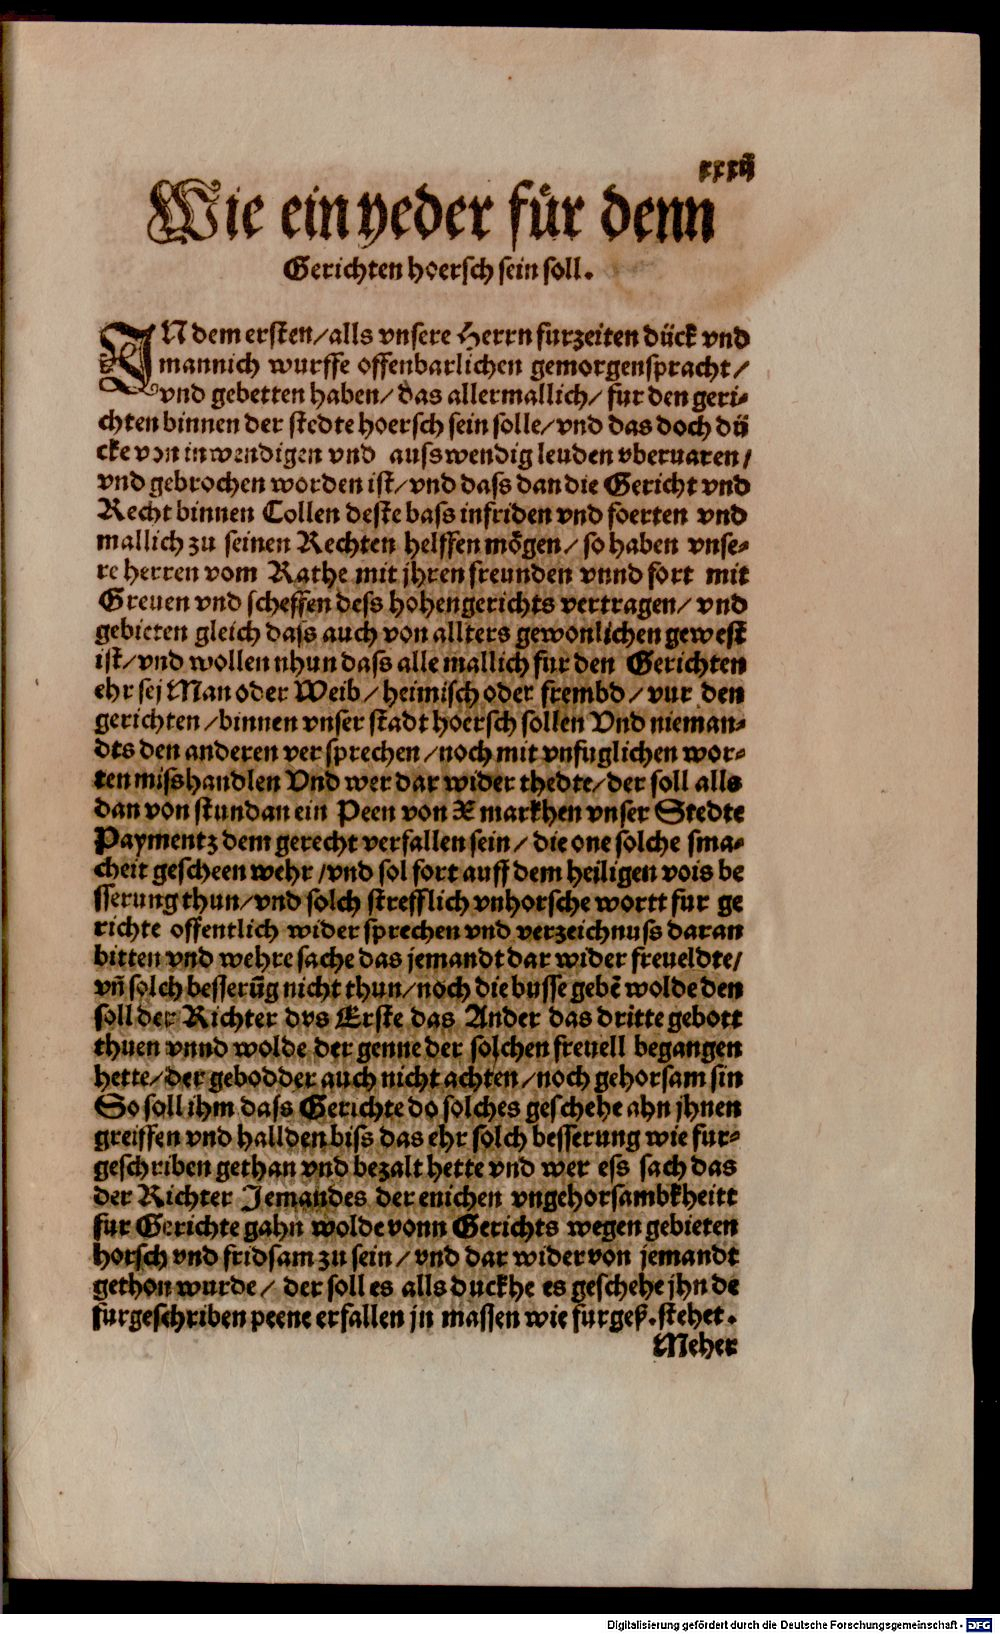 xxxij
Wie ein yeder für denn
Gerichten hoersch sein soll.
IN dem ersten/alls vnsere Herrn furzeiten dück vnd
mannich wurffe offenbarlichen gemorgenspracht/
vnd gebetten haben/ das allermallich/ fur den geri-
chten binnen der stedte hoersch sein solle/vnd das doch dü
cke von inwendigen vnd ausswendig leuden vberuaren/
vnd gebrochen worden ist/vnd dass dan die Gericht vnd
Recht binnen Collen deste bass infriden vnd foerten vnd
mallich zu seinen Rechten helffen mögen/ so haben vnse-
re herren vom Rathe mit jhren freunden vnnd fort mit
Greuen vnd scheffen dess hohengerichts vertragen/ vnd
gebieten gleich dass auch von allters gewonlichen gewest
ist/vnd wollen nhun dass alle mallich fur den Gerichten
ehr sej Man oder Weib/ heimisch oder frembd/ vur den
gerichten/binnen vnser stadt hoersch sollen Vnd nieman-
dts den anderen versprechen/noch mit vnfuglichen wor-
ten misshandlen Vnd wer dar wider thedte/der soll alls
dan von stundan ein Peen von X markhen vnser Stedte
Paymentz dem gerecht verfallen sein/ die one solche sma-
cheit gescheen wehr/vnd sol fort auff dem heiligen vois be
sserung thun/vnd solch strefflich vnhorsche wortt fur ge
richte offentlich wider sprechen vnd verzeichnuss daran
bitten vnd wehre sache das jemandt dar wider freueldte/
vn̄ solch besserūg nicht thun/noch die busse gebē wolde den
soll der Richter dvs Erste das Ander das dritte gebott
thuen vnnd wolde der genne der solchen freuell begangen
hette/der gebodder auch nicht achten/noch gehorsam sin
So soll ihm dass Gerichte do solches geschehe ahn jhnen
greiffen vnd hallden biss das ehr solch besserung wie fur-
geschriben gethan vnd bezalt hette vnd wer ess sach das
der Richter Jemandes der enichen vngehorsambkheitt
fur Gerichte gahn wolde vonn Gerichts wegen gebieten
horsch vnd fridsam zu sein/ vnd dar wider von jemandt
gethon wurde/ der soll es alls duckhe es geschehe jhn de
furgeschriben peene erfallen jn massen wie furgeß. stehet.
Meher
Digitalisierung gefördert durch die Deutsche Forschungsgemeinschaft - DFG